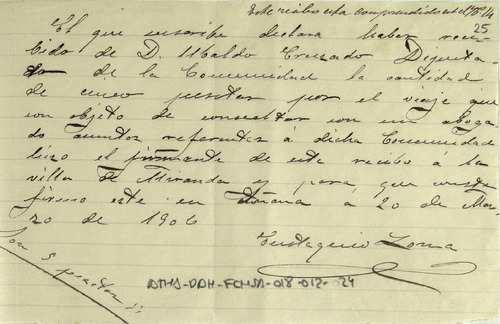 Este recibo esta comprendido en el
25
El que suscribe declara haber reci-
bido de D. Ubaldo Cruzado Diputa-
do de la Comunidad la cantidad
de cinco pesetas por el viaje que
con objeto de consultar con un aboga-
do asuntos referentes á dicha Comunidad
hizo el firmante de este recibo á la
villa de Miranda y para que conste
firmo este en á 20 de Mar-
zo de 1906
Eustaquio
Son 5 pesetas
ATHA-DAH-FCHSA-018-012-024